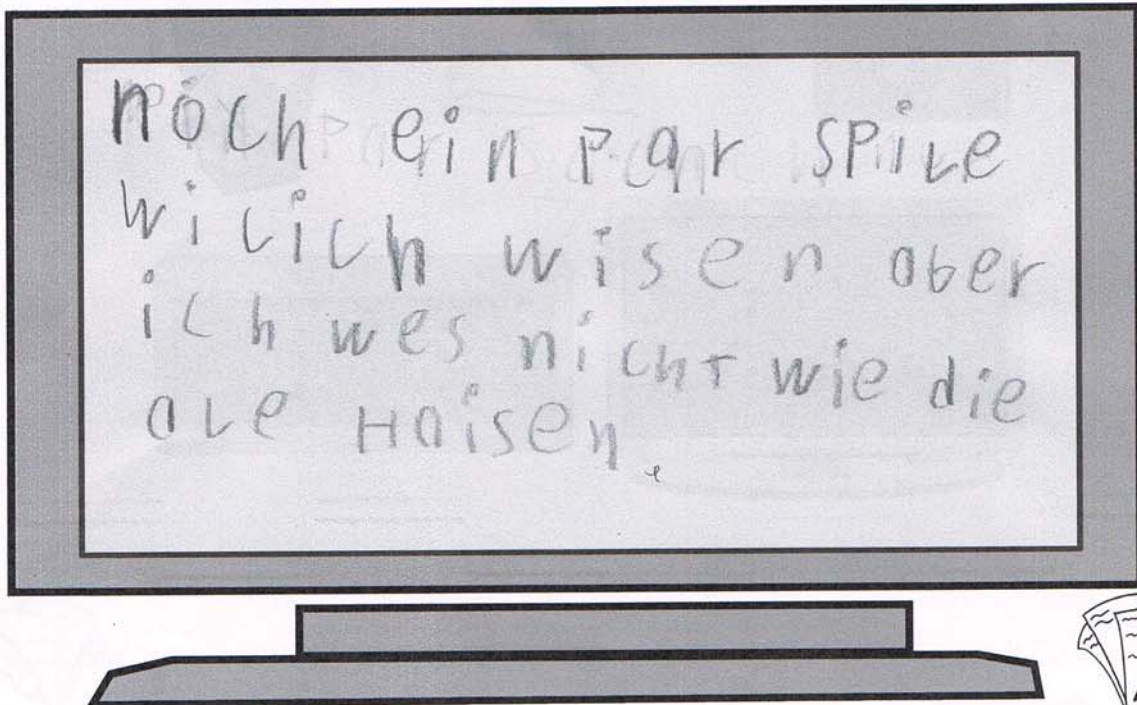 noch ein par spile
wilich wisen aber
ich wes nicht wie die
ale Haisen.